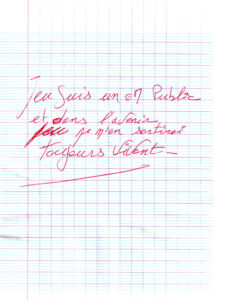 jeu suis un 07 Public
et dans l'avenir
je m'en sortirai
toujours Vivant_